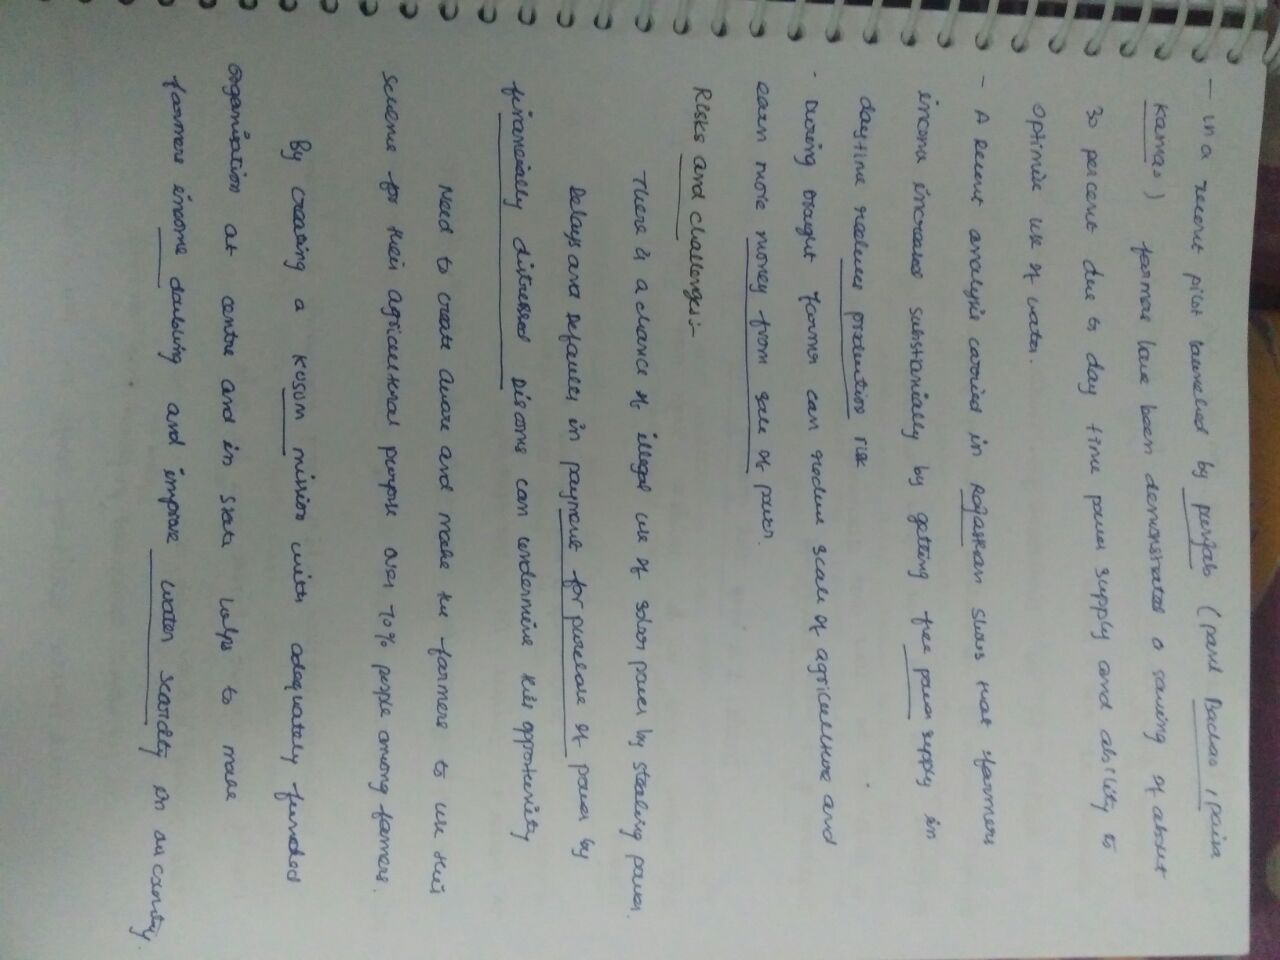 - In a recent pilot launched by punjab (pani Bachao, paisa
Kamao) farmers have been demonstrated a saving of about
30 percent due to day time power supply and ability to
optimize use of water.
- A recent analysis carried in Rajasthan shows that farmers
income increased substanially by getting free power supply in
daytime reduces production risk
. During drought farmer can reduce scale of agriculture and
earn more money from sale of power.
Risks and challenges:-
There is a chance of illegal use of solar power by stealing power.
Delays and defaults in payment for purchase of power by
financially distressed Discoms can undermine this opportunity
Need to create aware and make the farmers to use this
scheme for their agricultural purpose over 70% people among farmers.
By creating a KUSUM mission with adequately funded
organisation at centre and in state helps to make
farmers income doubling and improve water scarcity in our country.